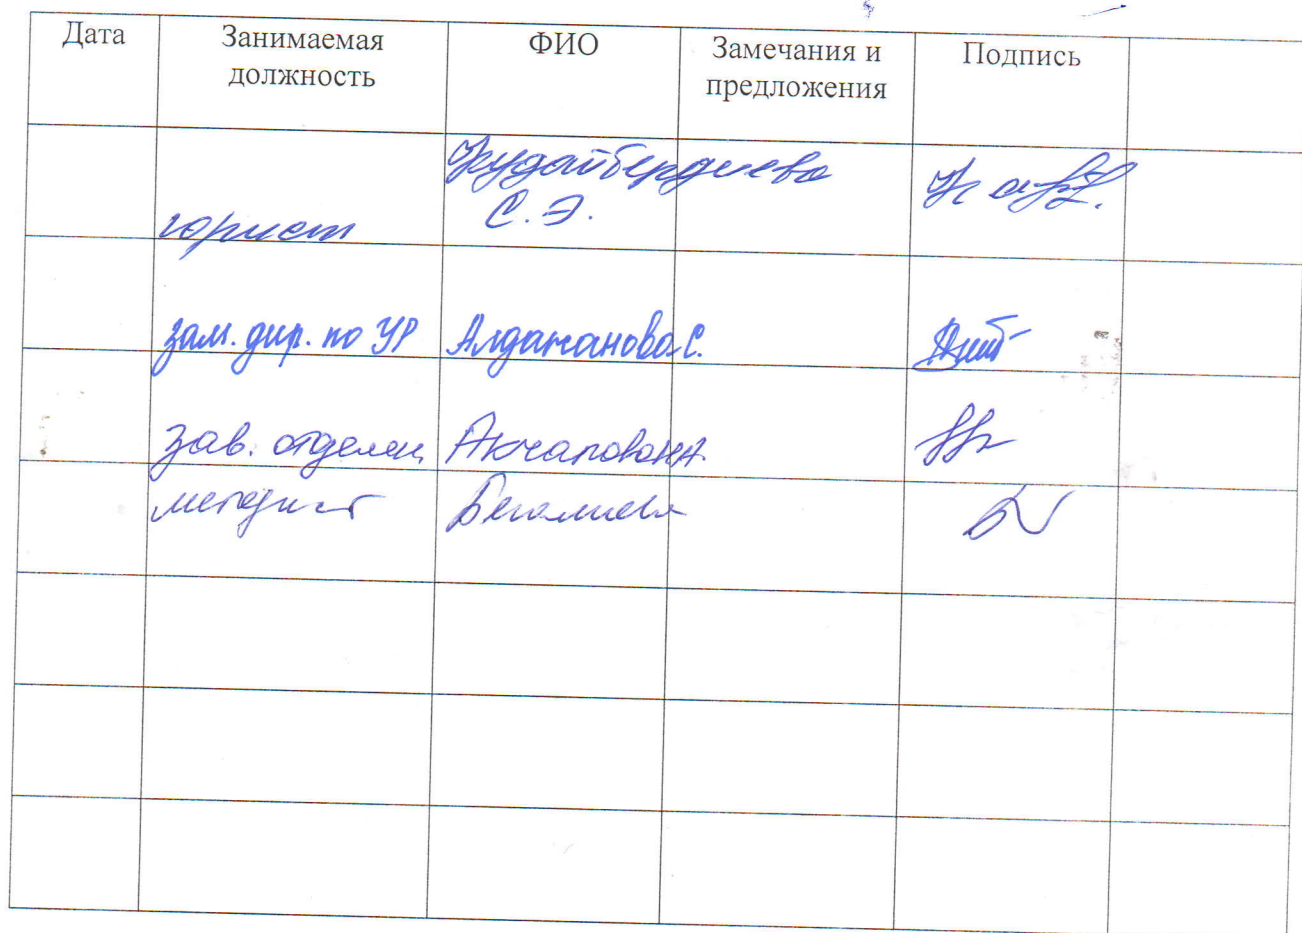 Дата Занимаемая должность ФИО Замечания и предложения Подпись
юрист Кудайбердиева С.Э.
зам. дир. по УР Алдажанова С.
зав. отделен
методист Бегалиева